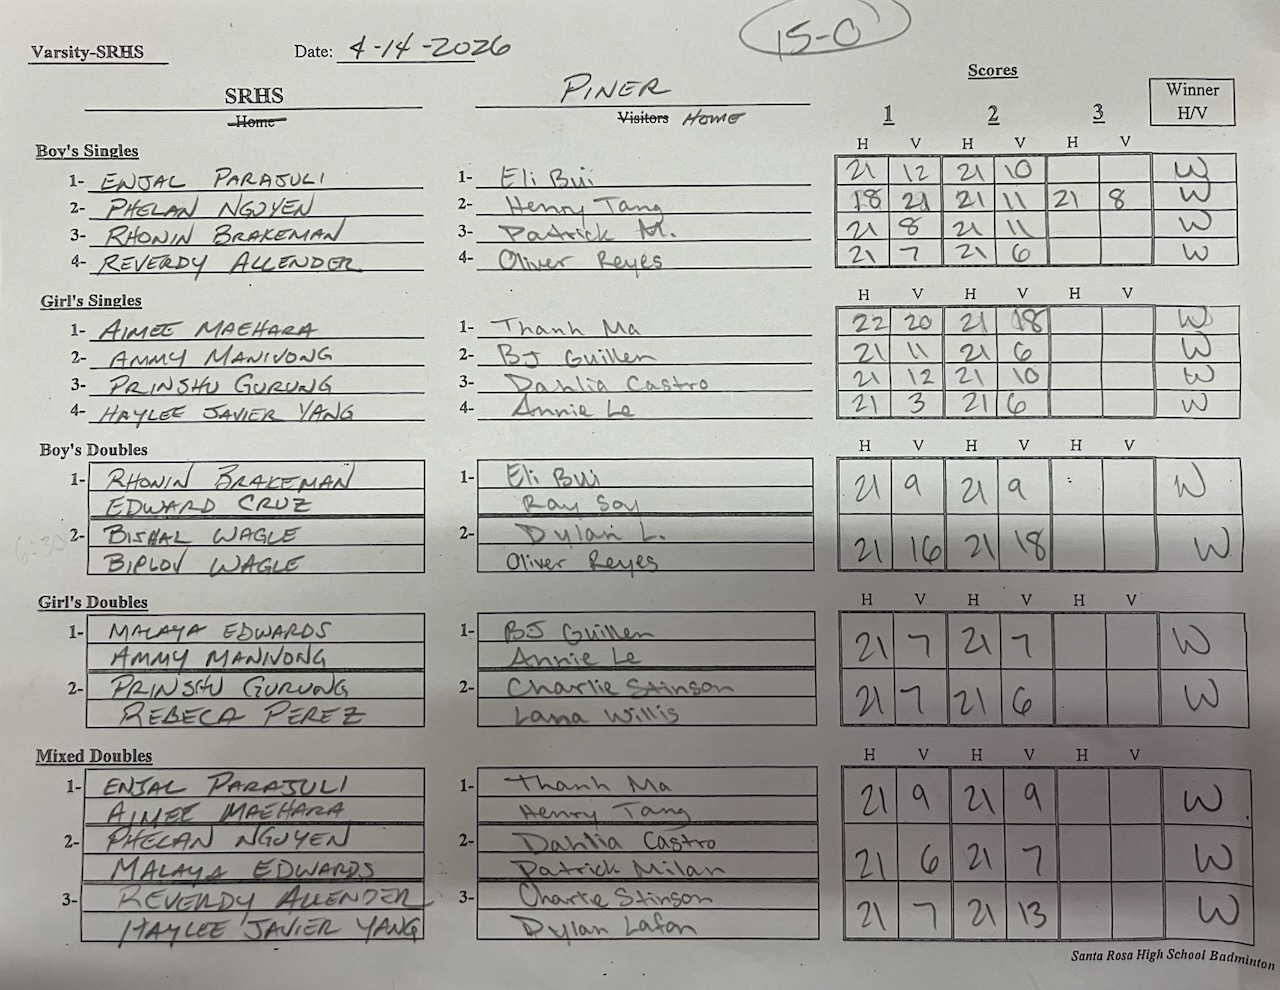 15-0
Varsity-SRHS Date: 4-14-2026
SRHS PINER Scores
Home Visitors HOME 1 2 3 Winner H/V
Boy's Singles H V H V H V
1- ENJAL PARAJULI 1- Eli Bui 21 12 21 10 W
2- PHELAN NGUYEN 2- Henry Tang 18 21 21 11 21 8 W
3- RHONIN BRAKEMAN 3- Patrick M. 21 8 21 11 W
4- REVERDY ALLENDER 4- Oliver Reyes 21 7 21 6 W
Girl's Singles H V H V H V
1- AIMEE MAEHARA 1- Thanh Ma 22 20 21 18 W
2- AMMY MANIVONG 2- BJ Guillen 21 11 21 6 W
3- PRINSHU GURUNG 3- Dahlia Castro 21 12 21 10 W
4- HAYLEE JAVIER YANG 4- Annie Le 21 3 21 6 W
Boy's Doubles H V H V H V
1- RHONIN BRAKEMAN 1- Eli Bui 21 9 21 9 W
EDWARD CRUZ Ray Soy
2- BISHAL WAGLE 2- Dylan L. 21 16 21 18 W
BIPLOV WAGLE Oliver Reyes
Girl's Doubles H V H V H V
1- MALAYA EDWARDS 1- BJ Guillen 21 7 21 7 W
AMMY MANIVONG Annie Le
2- PRINSHU GURUNG 2- Charlie Stinson 21 7 21 6 W
REBECA PEREZ Lana Willis
Mixed Doubles H V H V H V
1- ENJAL PARAJULI 1- Thanh Ma 21 9 21 9 W
AIMEE MAEHARA Henry Tang
2- PHELAN NGUYEN 2- Dahlia Castro 21 6 21 7 W
MALAYA EDWARDS Patrick Milan
3- REVERDY ALLENDER 3- Charlie Stinson 21 7 21 13 W
HAYLEE JAVIER YANG Dylan Lafon
Santa Rosa High School Badminton